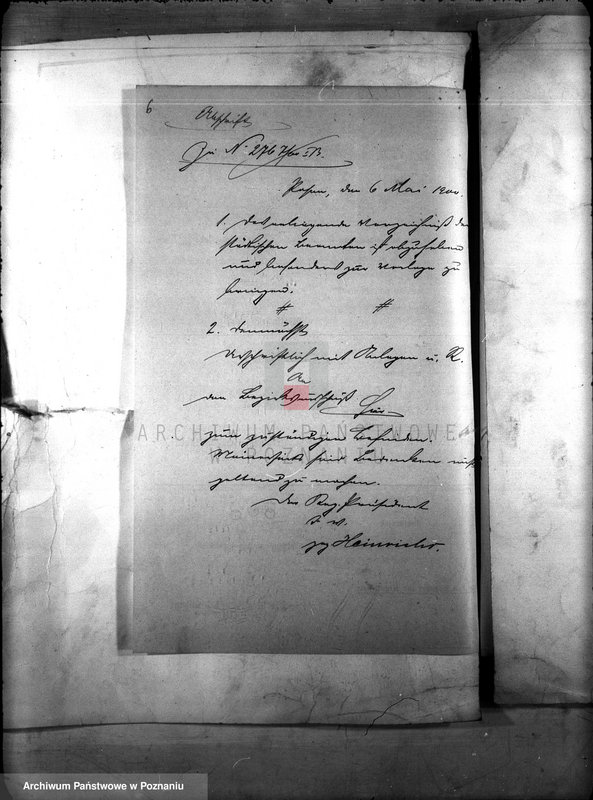 6
Abschrift
Zu No 276
Posen, den 6 Mai 1900.
1. Das anliegende Verzeichniß der
städtischen Beamten ist abzuheben
und besonders zur Vorlage zu
bringen.
# #
2. Demnächst
Urschriftlich mit Anlagen u. R.
An
den Bezirksausschuß
Hier
ARCHIWUM PAŃSTWOWE
W POZNANIU
zum zuständigen Befinden.
Meinerseits sind Bedenken nicht
geltend zu machen.
Der Reg. Präsident
I. V.
gez Heinrichs.
Archiwum Państwowe w Poznaniu